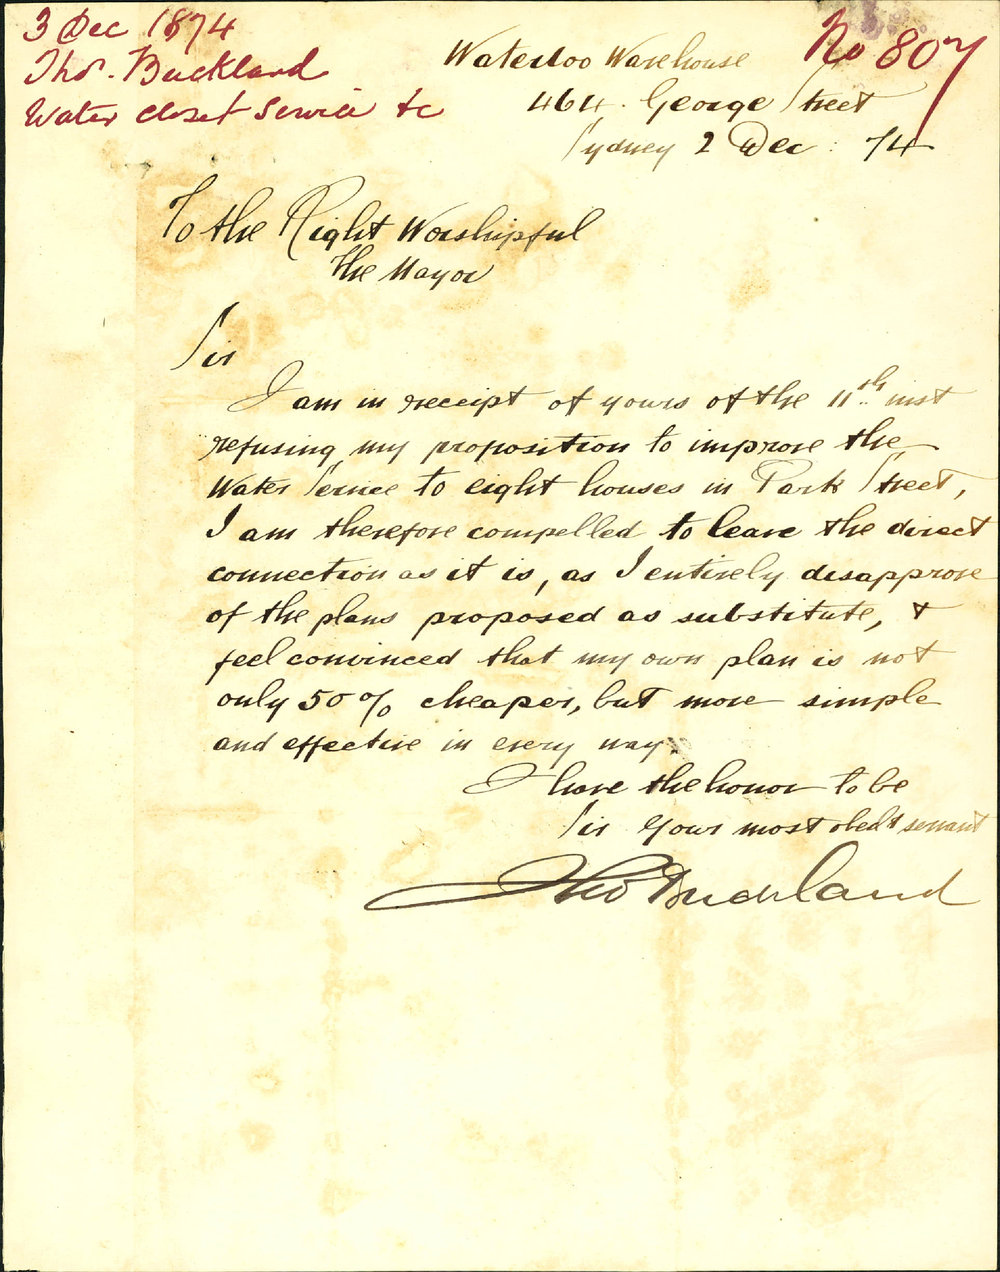 3 Dec 1874
Thos. Buckland
Water closet Service &c
No 807
Waterloo Warehouse
464. George Street
Sydney 2 Dec : 74
To the Right Worshipful
The Mayor
Sir
I am in receipt of yours of the 11th inst
refusing my proposition to improve the
Water Service to eight houses in Park Street,
I am therefore compelled to leave the direct
connection as it is, as I entirely disapprove
of the plans proposed as substitute, &
feel convinced that my own plan is not
only 50% cheaper, but more simple
and effective in every way.
I have the honor to be
Sir Your most obedt servant
Thos Buckland